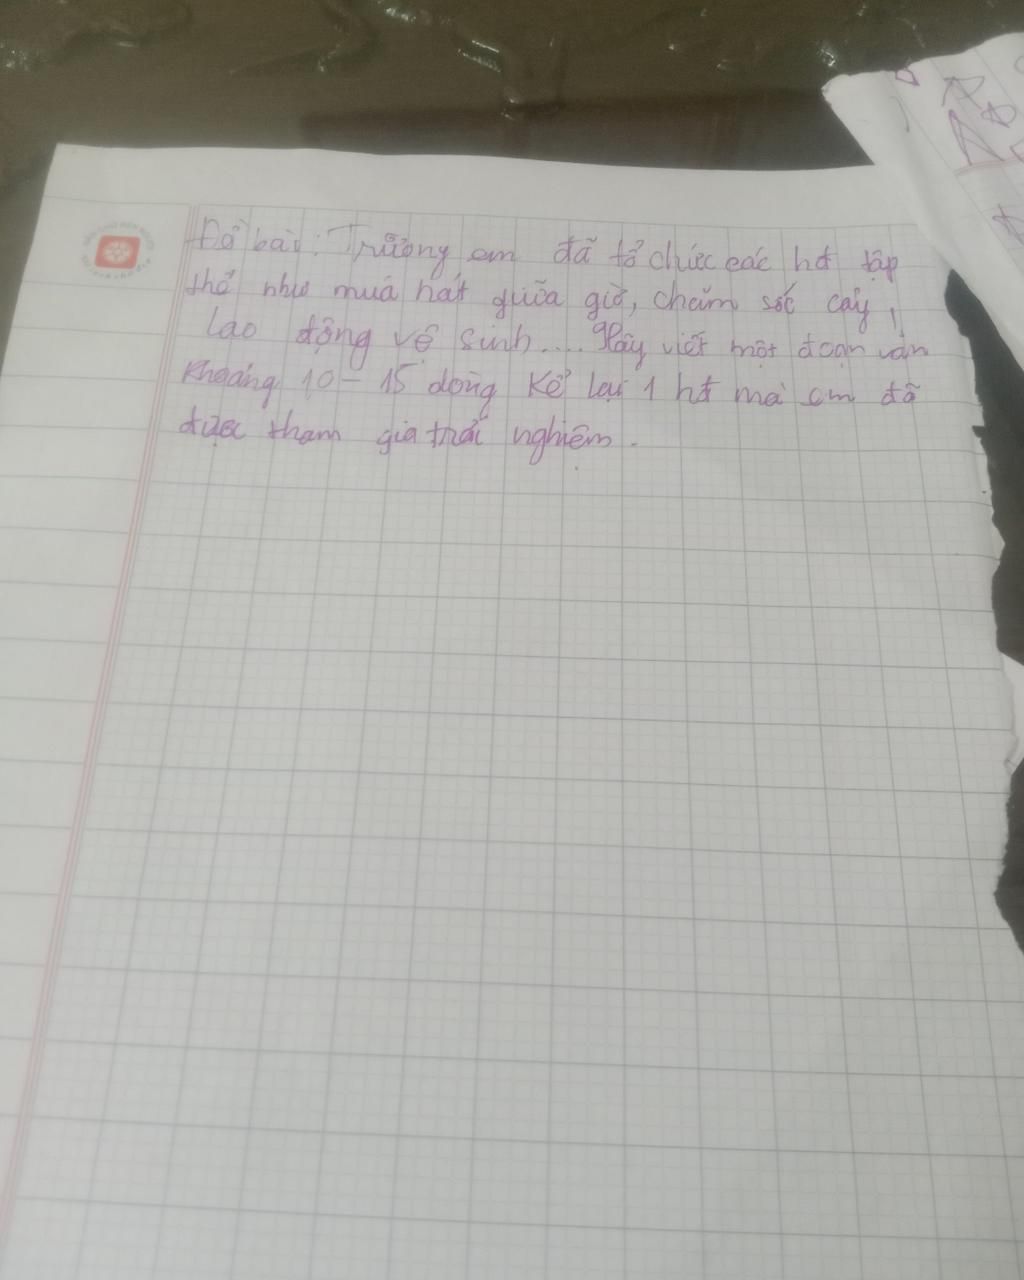 Đề bài: Trường em đã tổ chức các hđ tập
thể như múa hát giữa giờ, chăm sóc cây,
lao động vệ sinh.... Hãy viết một đoạn văn
khoảng 10 - 15 dòng kể lại 1 hđ mà em đã
được tham gia trải nghiệm.